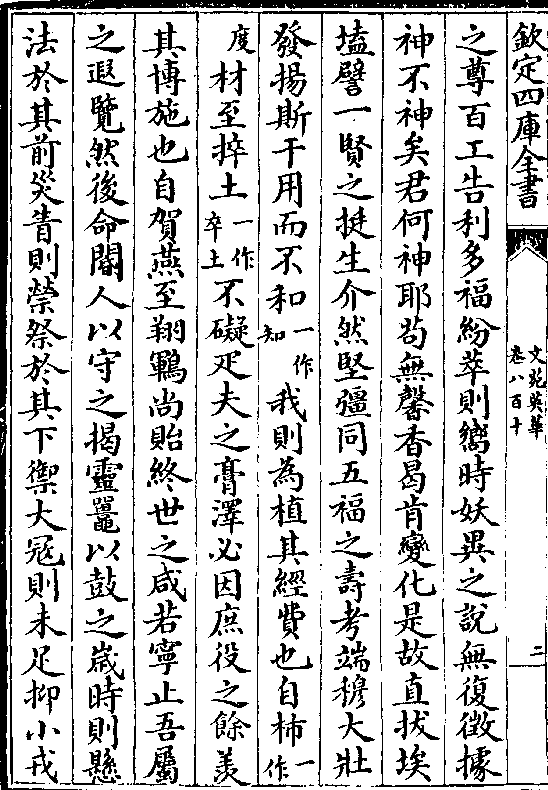 欽定四庫全書
文苑英華
卷八百十
二
之尊百工告利多福紛萃則嚮時妖異之説無復徵據
神不神矣君何神耶茍無馨香曷肯變化是故直拔埃
壒譬一賢之挺生介然堅彊同五福之壽考端穆大壯
發揚斯干用而不和一作知我則為植其經費也自柿一作
度材至捽土一作卒土不礙疋夫之膏澤必因庶役之餘羨
其博施也自賀燕至翔鷃尚貽終世之咸若寧止吾屬
之遐覽然後命閽人以守之揭靈鼉以鼓之嵗時則懸
法於其前災眚則禜祭於其下禦大冦則未足抑小戎